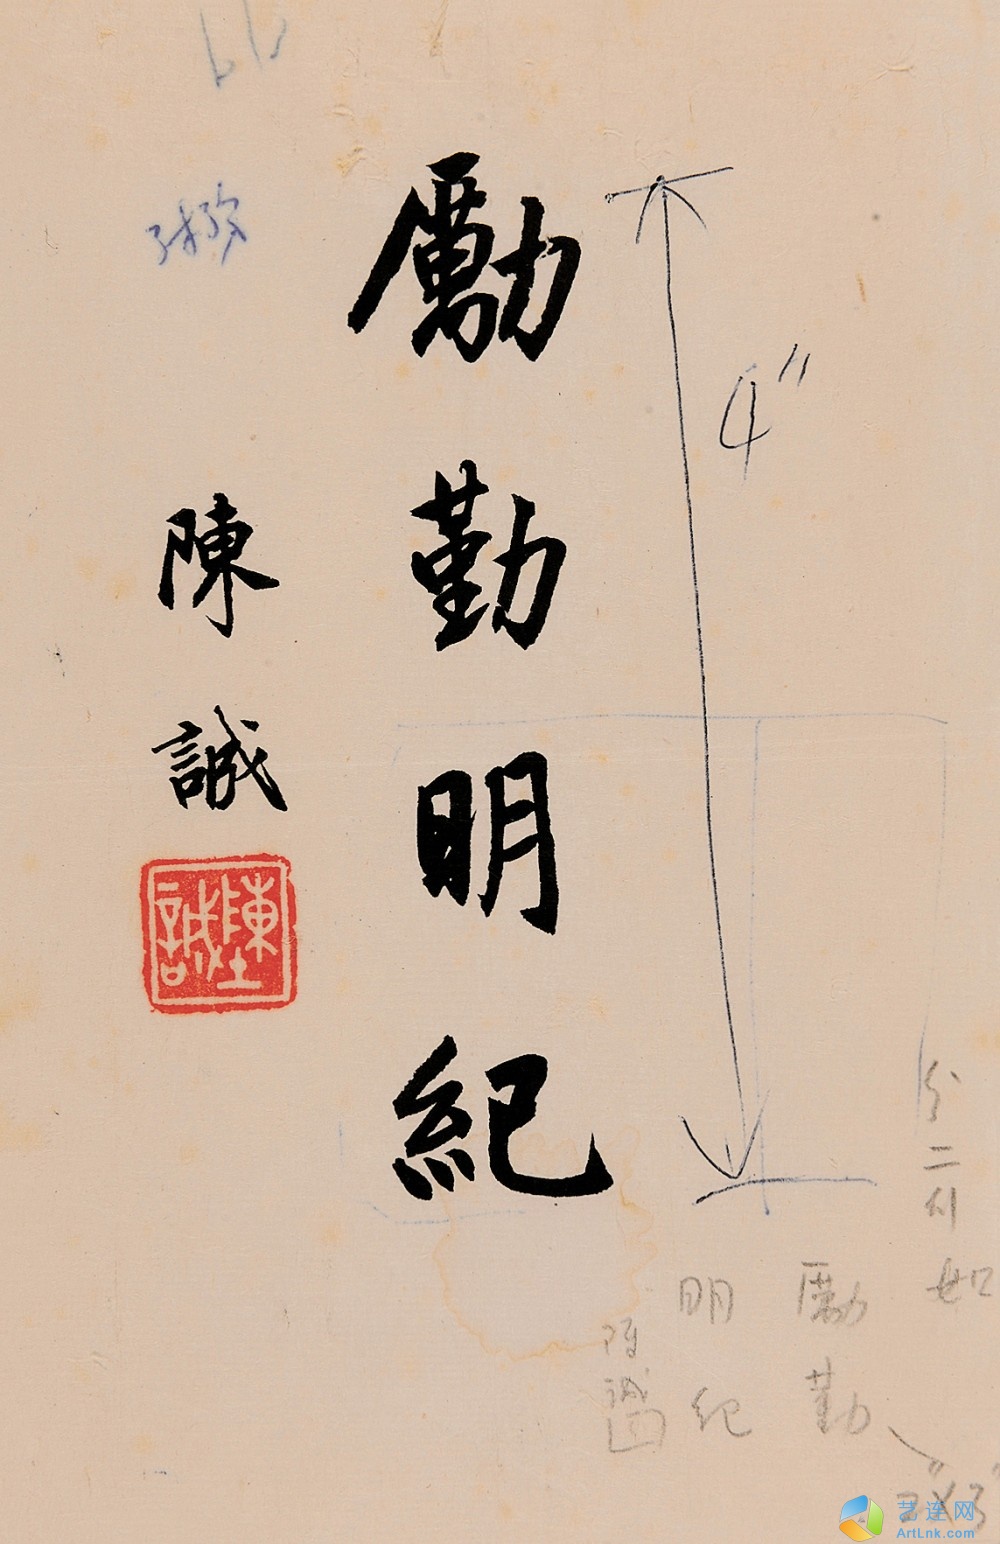 勵勤明紀
陳誠
陳誠
4"
分二行如
勵勤
明紀
陳誠
艺连网
ArtLnk.com